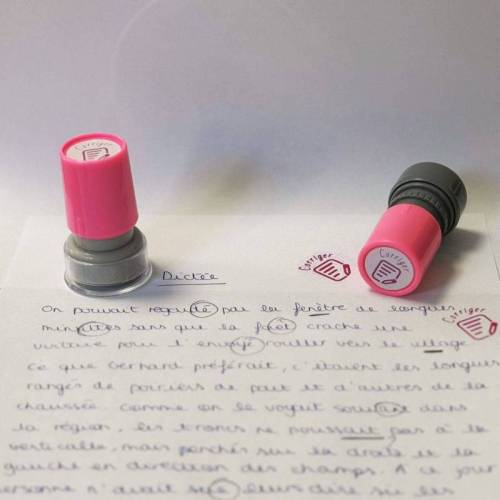 Corriger
Corriger
Corriger
Dictée
Corriger
On pouvait regardé par la fenêtre de longues
minuttes sans que la forêt crache une
voiture pour l'envoyé rouller vers le village
Ce que Gerhard préférait, c'étaient les longues
rangés de poiriers de part et d'autres de la
chaussée. Comme on le voyait souvant dans
la région, les troncs ne poussait pas à la
verticalle, mais penchés sur la droite et la
gauche en direction des champs. A ce jour
personne n'avait sut leurs dire si les